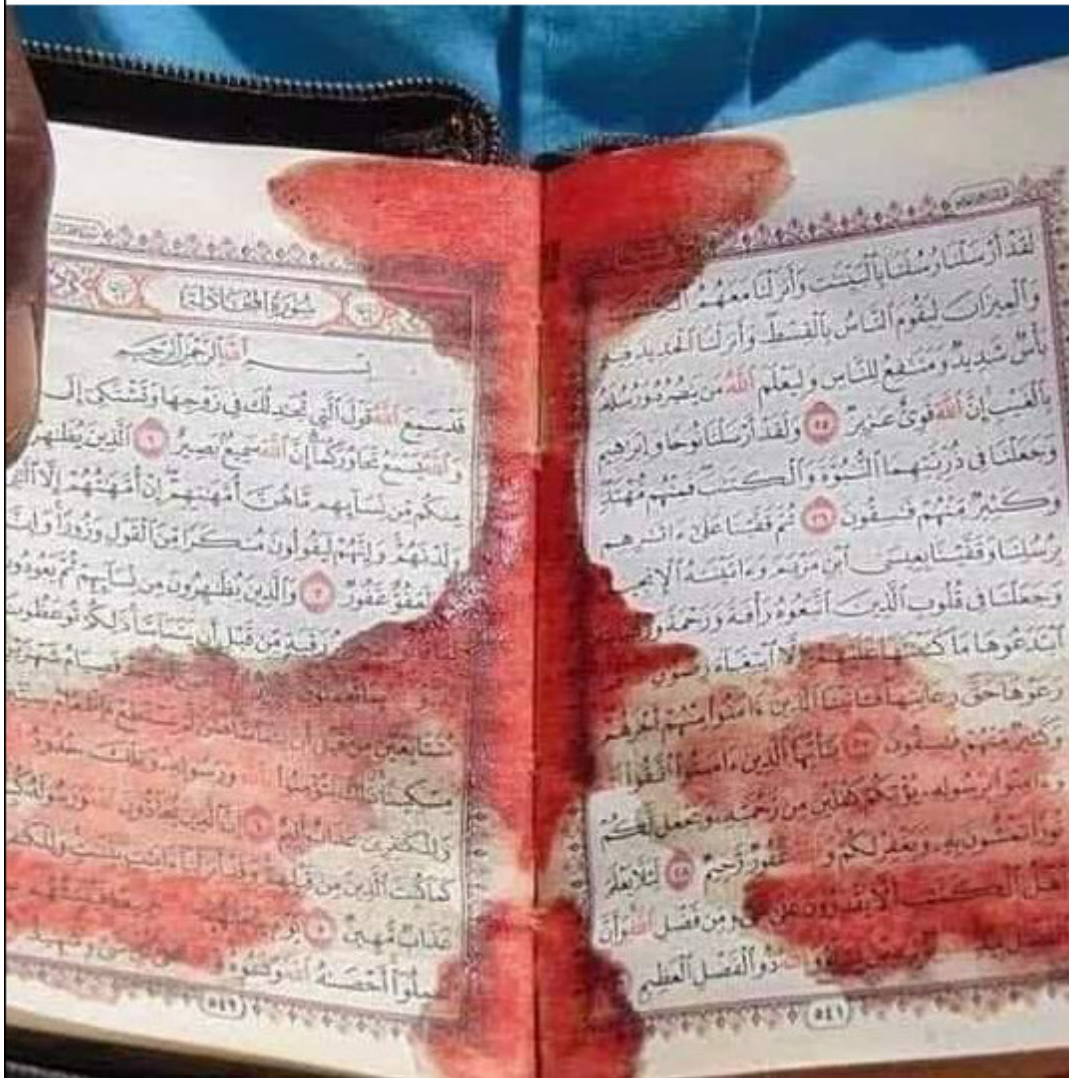 لَقَدْ أَرْسَلْنَا رُسُلَنَا بِٱلْبَيِّنَٰتِ وَأَنزَلْنَا مَعَهُمُ
وَٱلْمِيزَانَ لِيَقُومَ ٱلنَّاسُ بِٱلْقِسْطِ وَأَنزَلْنَا ٱلْحَدِيدَ فِيهِ
بَأْسٌ شَدِيدٌ وَمَنَٰفِعُ لِلنَّاسِ وَلِيَعْلَمَ ٱللَّهُ مَن يَنصُرُهُۥ وَرُسُلَهُۥ
بِٱلْغَيْبِ إِنَّ ٱللَّهَ قَوِىٌّ عَزِيزٌ ٢٥ وَلَقَدْ أَرْسَلْنَا نُوحًا وَإِبْرَٰهِيمَ
وَجَعَلْنَا فِى ذُرِّيَّتِهِمَا ٱلنُّبُوَّةَ وَٱلْكِتَٰبَ فَمِنْهُم مُّهْتَدٍ
وَكَثِيرٌ مِّنْهُمْ فَٰسِقُونَ ٢٦ ثُمَّ قَفَّيْنَا عَلَىٰٓ ءَاثَٰرِهِم
بِرُسُلِنَا وَقَفَّيْنَا بِعِيسَى ٱبْنِ مَرْيَمَ وَءَاتَيْنَٰهُ ٱلْإِنجِيلَ
وَجَعَلْنَا فِى قُلُوبِ ٱلَّذِينَ ٱتَّبَعُوهُ رَأْفَةً وَرَحْمَةً
ٱبْتَدَعُوهَا مَا كَتَبْنَٰهَا عَلَيْهِمْ إِلَّا ٱبْتِغَآءَ رِضْوَٰنِ
رَعَوْهَا حَقَّ رِعَايَتِهَا فَـَٔاتَيْنَا ٱلَّذِينَ ءَامَنُوا۟ مِنْهُمْ أَجْرَهُمْ
وَكَثِيرٌ مِّنْهُمْ فَٰسِقُونَ ٢٧ يَٰٓأَيُّهَا ٱلَّذِينَ ءَامَنُوا۟ ٱتَّقُوا۟
وَءَامِنُوا۟ بِرَسُولِهِۦ يُؤْتِكُمْ كِفْلَيْنِ مِن رَّحْمَتِهِۦ وَيَجْعَل لَّكُمْ
نُورًا تَمْشُونَ بِهِۦ وَيَغْفِرْ لَكُمْ غَفُورٌ رَّحِيمٌ ٢٨ لِّئَلَّا يَعْلَمَ
أَهْلُ ٱلْكِتَٰبِ أَلَّا يَقْدِرُونَ عَلَىٰ شَىْءٍ مِّن فَضْلِ ٱللَّهِ وَأَنَّ
ٱلْفَضْلَ بِيَدِ ذُو ٱلْفَضْلِ ٱلْعَظِيمِ
٥٤١
سُورَةُ المُجَادلة
بِسْمِ ٱللَّهِ ٱلرَّحْمَٰنِ ٱلرَّحِيمِ
قَدْ سَمِعَ ٱللَّهُ قَوْلَ ٱلَّتِى تُجَٰدِلُكَ فِى زَوْجِهَا وَتَشْتَكِىٓ إِلَى
وَٱللَّهُ يَسْمَعُ تَحَاوُرَكُمَآ إِنَّ ٱللَّهَ سَمِيعٌۢ بَصِيرٌ ١ ٱلَّذِينَ يُظَٰهِرُونَ
مِنكُم مِّن نِّسَآئِهِم مَّا هُنَّ أُمَّهَٰتِهِمْ إِنْ أُمَّهَٰتُهُمْ إِلَّا ٱلَّٰٓـِٔى
وَلَدْنَهُمْ وَإِنَّهُمْ لَيَقُولُونَ مُنكَرًا مِّنَ ٱلْقَوْلِ وَزُورًا وَإِنَّ
لَعَفُوٌّ غَفُورٌ ٢ وَٱلَّذِينَ يُظَٰهِرُونَ مِن نِّسَآئِهِمْ ثُمَّ يَعُودُونَ
رَقَبَةٍ مِّن قَبْلِ أَن يَتَمَآسَّا ذَٰلِكُمْ تُوعَظُونَ
فَصِيَامُ شَهْرَيْنِ
مُتَتَابِعَيْنِ مِن قَبْلِ أَن يَتَمَآسَّا فَمَن لَّمْ يَسْتَطِعْ فَإِطْعَامُ سِتِّينَ
مِسْكِينًا ذَٰلِكَ لِتُؤْمِنُوا۟ بِٱللَّهِ وَرَسُولِهِۦ وَتِلْكَ حُدُودُ
وَلِلْكَٰفِرِينَ عَذَابٌ أَلِيمٌ ٤ إِنَّ ٱلَّذِينَ يُحَآدُّونَ ٱللَّهَ وَرَسُولَهُۥ كُبِتُوا۟
كَمَا كُبِتَ ٱلَّذِينَ مِن قَبْلِهِمْ وَقَدْ أَنزَلْنَآ ءَايَٰتٍۭ بَيِّنَٰتٍ وَلِلْكَٰفِرِينَ
عَذَابٌ مُّهِينٌ ٥
عَمِلُوٓا۟ أَحْصَىٰهُ ٱللَّهُ وَنَسُوهُ